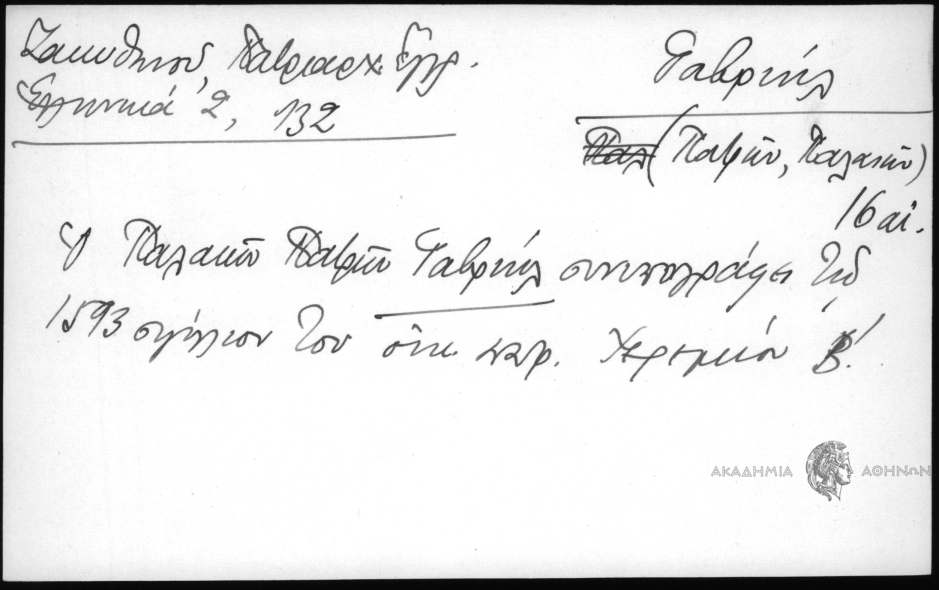 Ζακυθηνού, Πατριαρχ. Έγγρ.
Ελληνικά 2, 132
Γαβριήλ
Παλ (Πατρών, Παλαιών)
16 αι.
Ο Παλαιών Πατρών Γαβριήλ συνυπογράφει τω
1593 σιγίλλιον του οικ. πατρ. Ιερεμίου Β΄.
ΑΚΑΔΗΜΙΑ ΑΘΗΝΩΝ